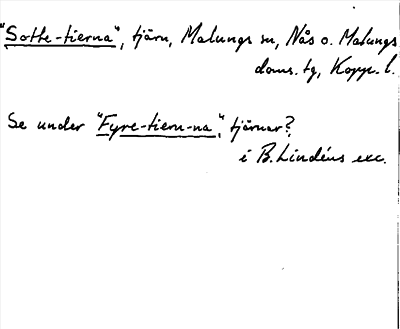 "Sotte-tierna", tjärn, Malungs sn, Nås o. Malungs
doms. tg, Kopp. l.
Se under "Fyre-tiern-na", tjärnar?
i B. Lindéns exc.